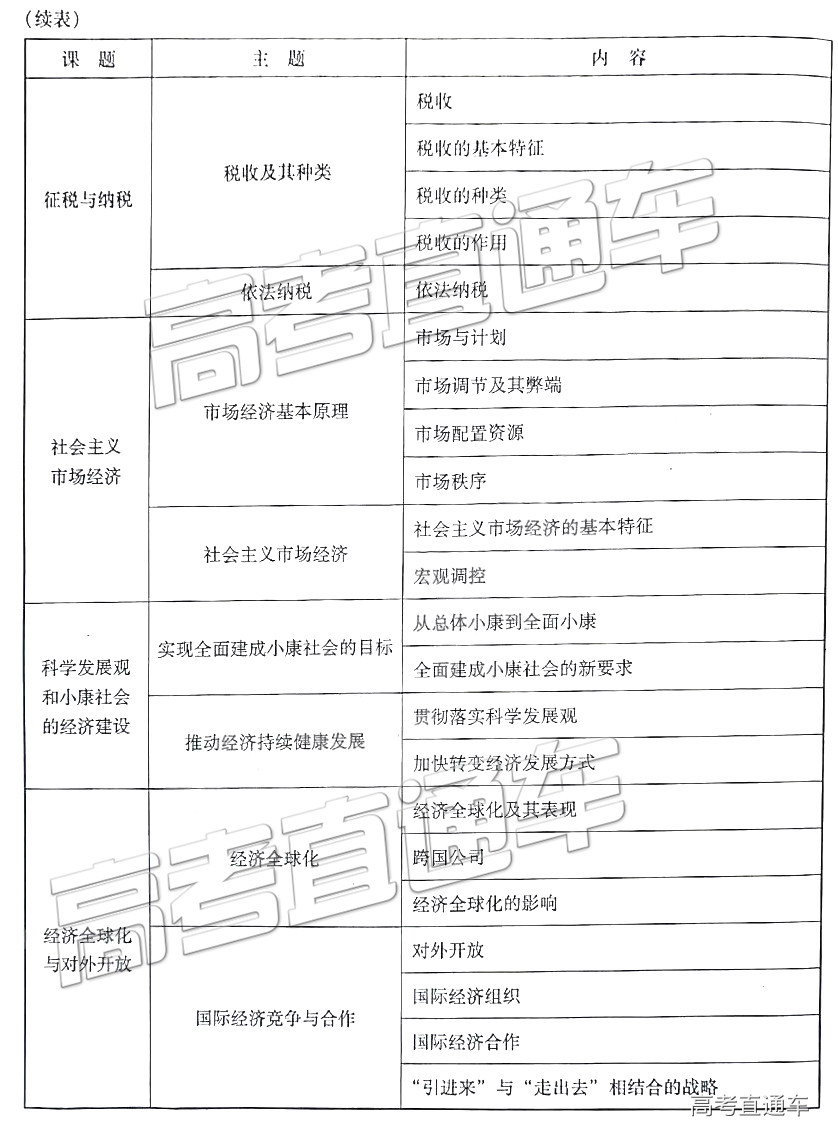 （续表）
课 题 主 题 内 容
税收
税收的基本特征
税收及其种类
征税与纳税
税收的种类
税收的作用
依法纳税 依法纳税
市场与计划
市场调节及其弊端
市场经济基本原理
市场配置资源
社会主义
市场经济
市场秩序
社会主义市场经济的基本特征
社会主义市场经济
宏观调控
从总体小康到全面小康
实现全面建成小康社会的目标
全面建成小康社会的新要求
科学发展观
和小康社会
的经济建设
贯彻落实科学发展观
推动经济持续健康发展
加快转变经济发展方式
经济全球化及其表现
经济全球化
跨国公司
经济全球化的影响
经济全球化
与对外开放
对外开放
国际经济组织
国际经济竞争与合作
国际经济合作
“引进来”与“走出去”相结合的战略
高考直通车
高考直通车
高考直通车